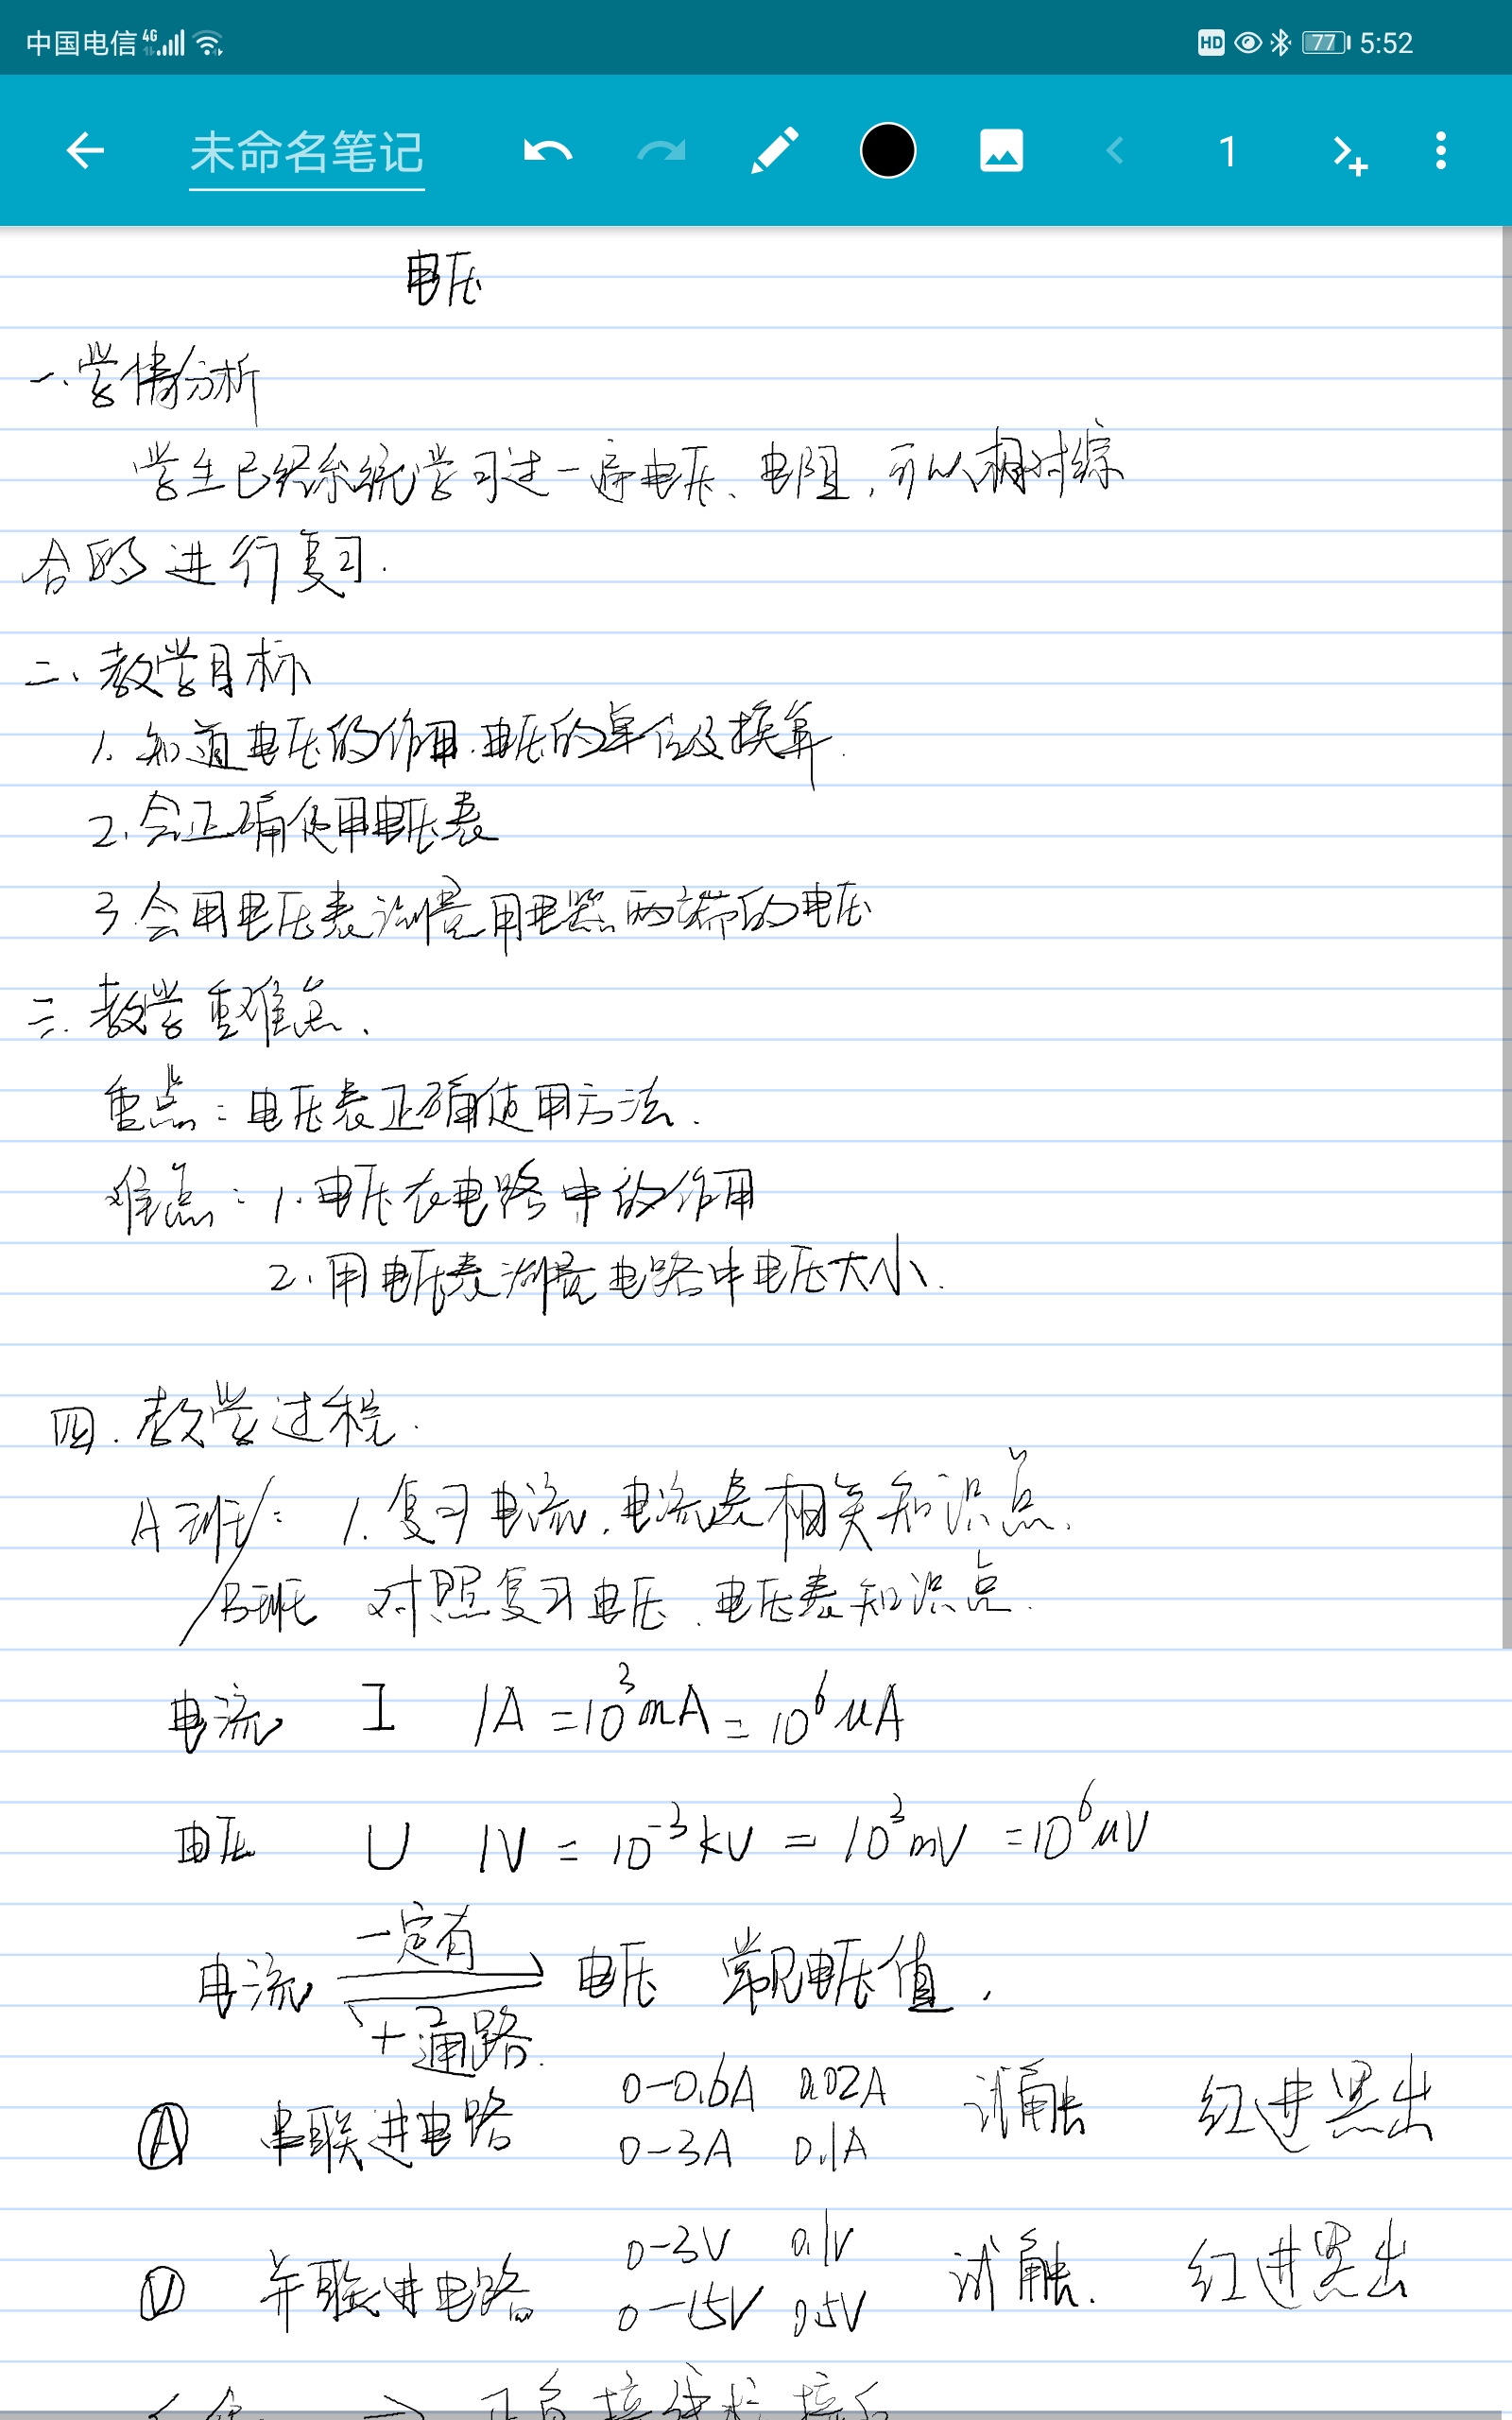 中国电信 4G HD 77 5:52
未命名笔记 1
电压
一.学情分析
学生已经系统学习过一遍电压、电阻,可以相对综
合的进行复习.
二、教学目标
1.知道电压的作用.电压的单位及换算.
2.会正确使用电压表
3.会用电压表测量用电器两端的电压
三.教学重难点.
重点:电压表正确使用方法.
难点:1.电压在电路中的作用
2.用电压表测量电路中电压大小.
四.教学过程.
A班/: 1.复习电流.电流表相关知识点.
/B班 对照复习电压.电压表知识点.
电流 I 1A=10³mA=10⁶μA
电压 U 1V=10⁻³kV=10³mV=10⁶μV
一定有
电流 电压 常见电压值.
+通路.
Ⓐ 串联进电路 0-0.6A 0.02A 试触 红进黑出
0-3A 0.1A
Ⓥ 并联进电路 0-3V 0.1V 试触. 红进黑出
0-15V 0.5V
正负接线柱接反